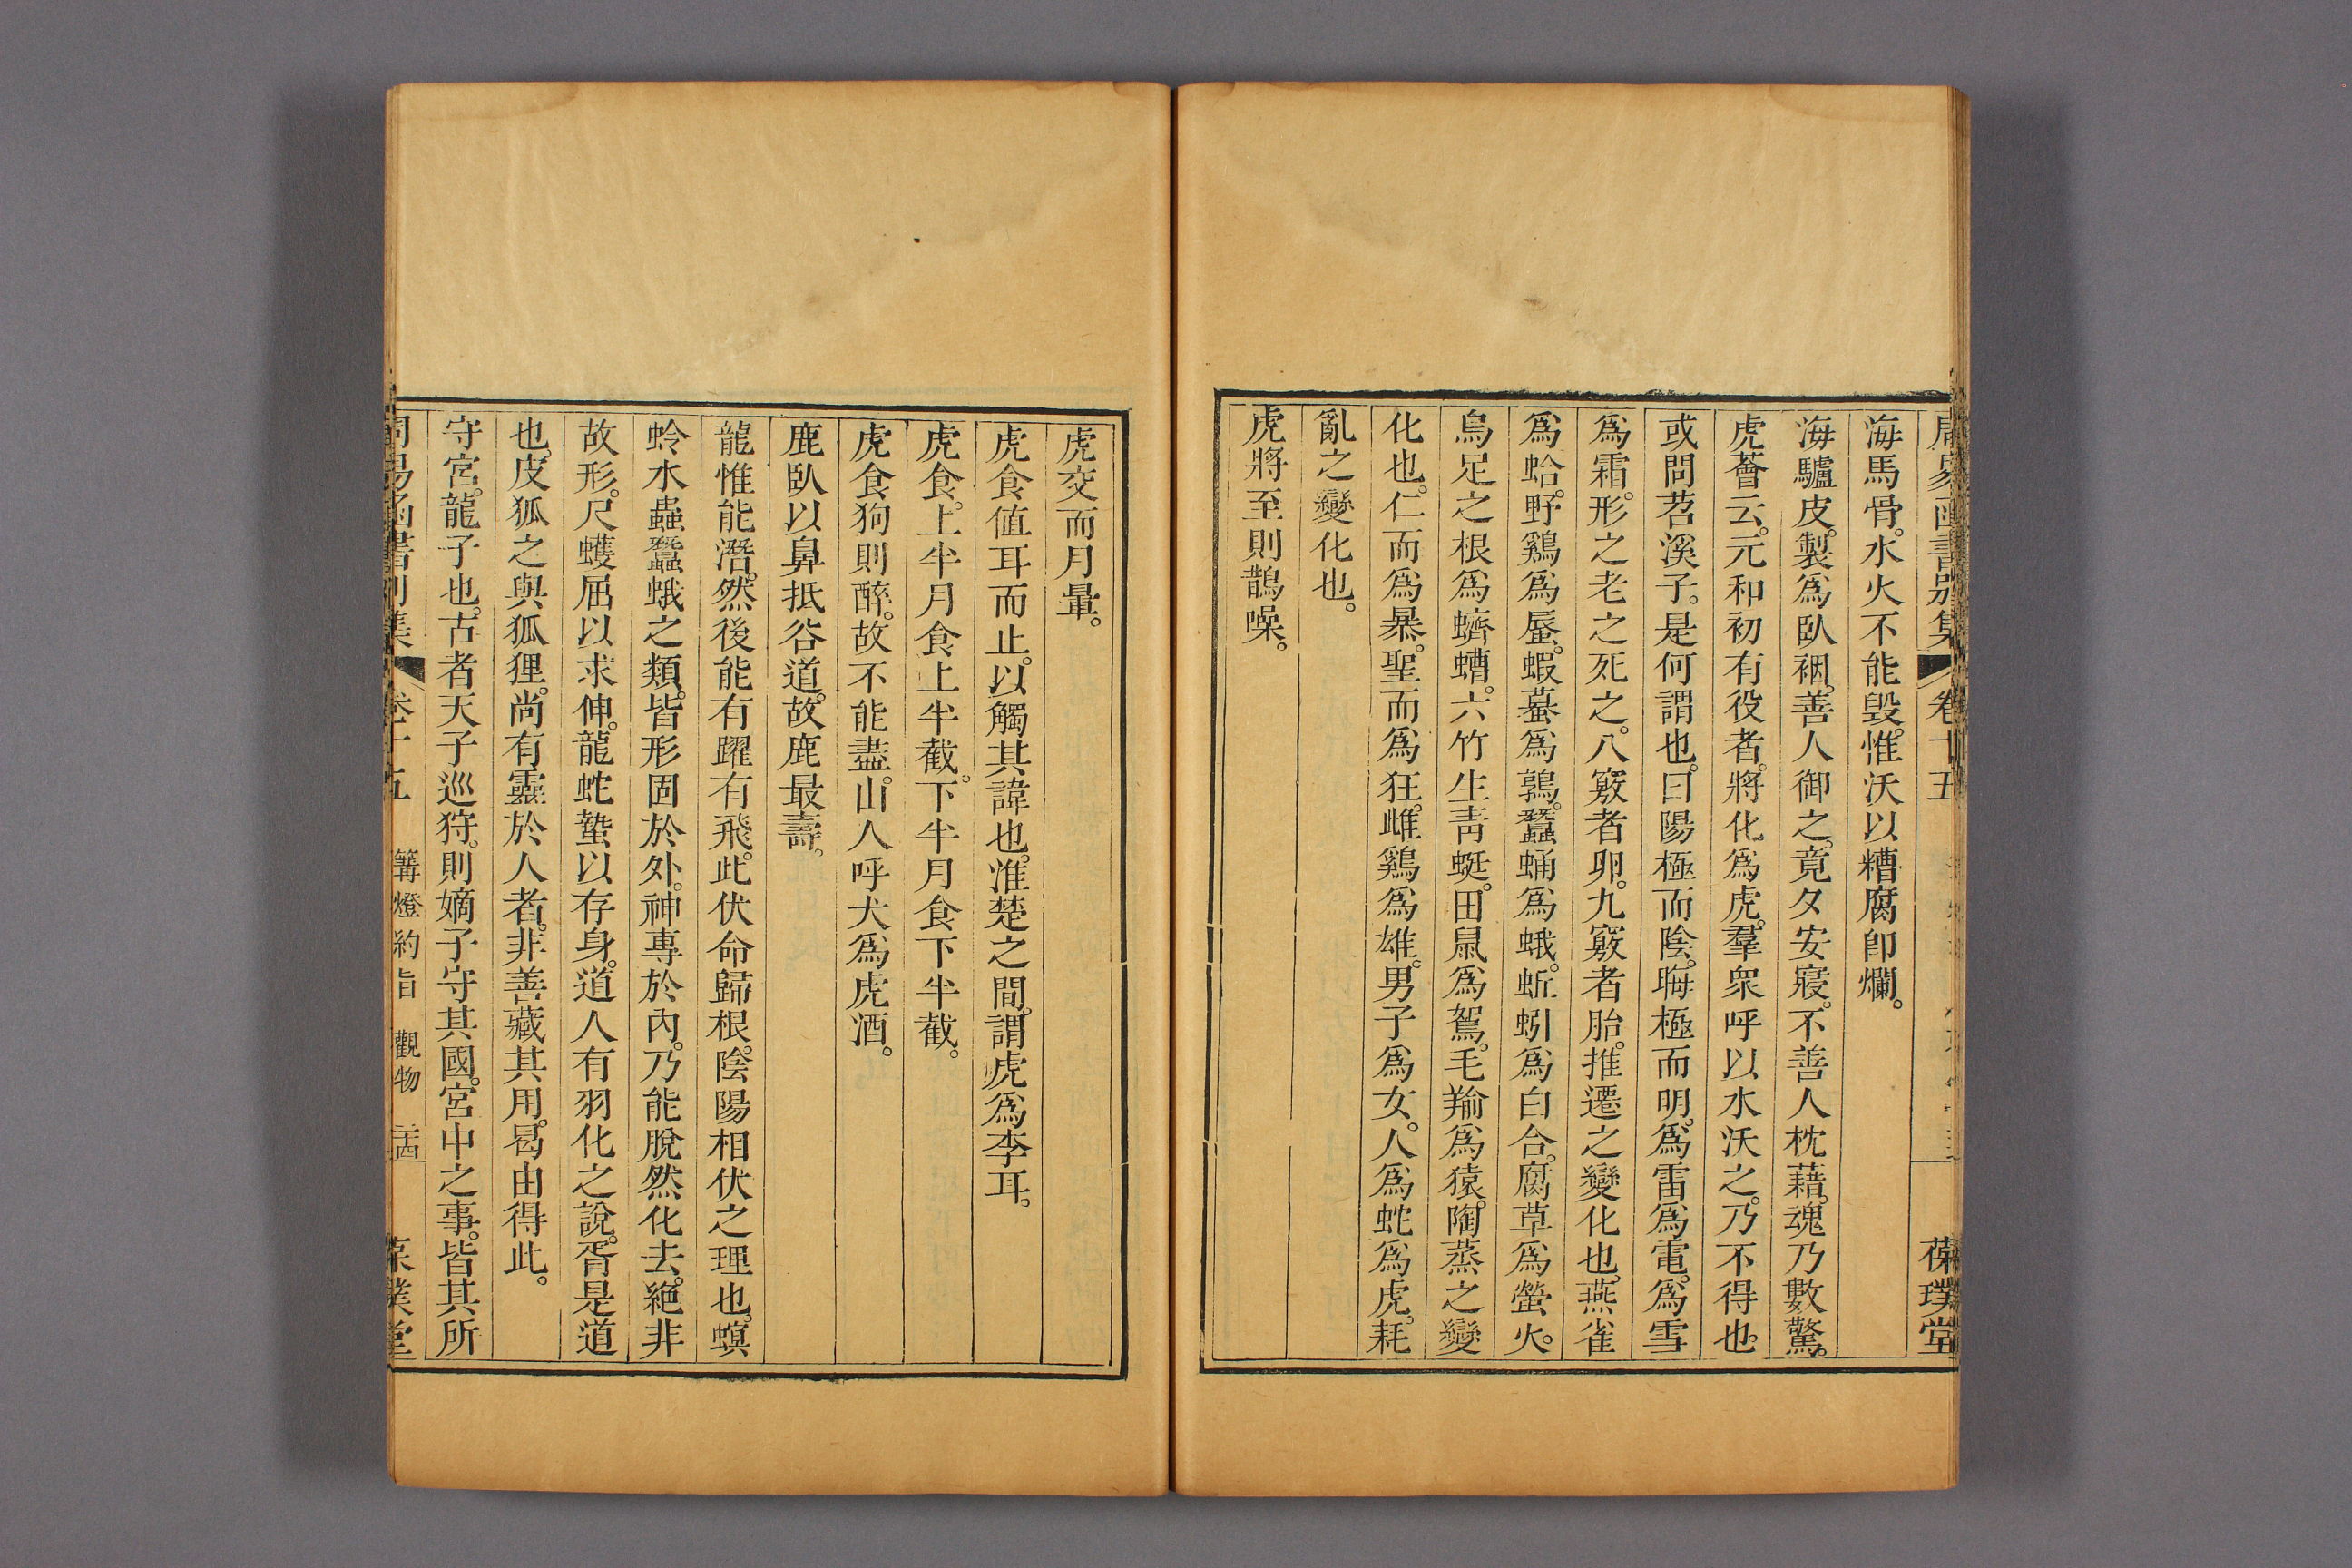 周易函書別集 卷十五 葆璞堂
海馬骨。水火不能毀。惟沃以糟腐卽爛。
海驢皮。製爲臥裀。善人御之。竟夕安寢。不善人枕藉。魂乃數驚。
虎薈云。元和初有役者。將化爲虎。羣衆呼以水沃之。乃不得也。
或問苕溪子。是何謂也。曰陽極而陰。晦極而明。爲雷爲電。爲雪
爲霜。形之老之死之。八竅者卵。九竅者胎。推遷之變化也。燕雀
爲蛤。野鷄爲蜃。蝦蟇爲鶉。蠶蛹爲蛾。蚯蚓爲白合。腐草爲螢火。
烏足之根爲蠐螬。六竹生靑蜓。田鼠爲鴽。毛羭爲猿。陶蒸之變
化也。仁而爲暴。聖而爲狂。雌鷄爲雄。男子爲女。人爲蛇爲虎。耗
亂之變化也。
虎將至則鵲噪。
虎交而月暈。
虎食值耳而止。以觸其諱也。淮楚之間。謂虎爲李耳。
虎食。上半月食上半截。下半月食下半截。
虎食狗則醉。故不能盡。山人呼犬爲虎酒。
鹿臥以鼻抵谷道。故鹿最壽。
龍惟能潛。然後能有躍有飛。此伏命歸根。陰陽相伏之理也。螟
蛉水蟲蠶蛾之類。皆形固於外。神專於內。乃能脫然化去。絕非
故形。尺蠖屈以求伸。龍蛇蟄以存身。道人有羽化之說。胥是道
也。皮狐之與狐狸。尚有靈於人者。非善藏其用。曷由得此。
守宮。龍子也。古者天子巡狩。則嫡子守其國。宮中之事。皆其所
周易函書別集 卷十五 篝燈約旨 觀物 葆璞堂